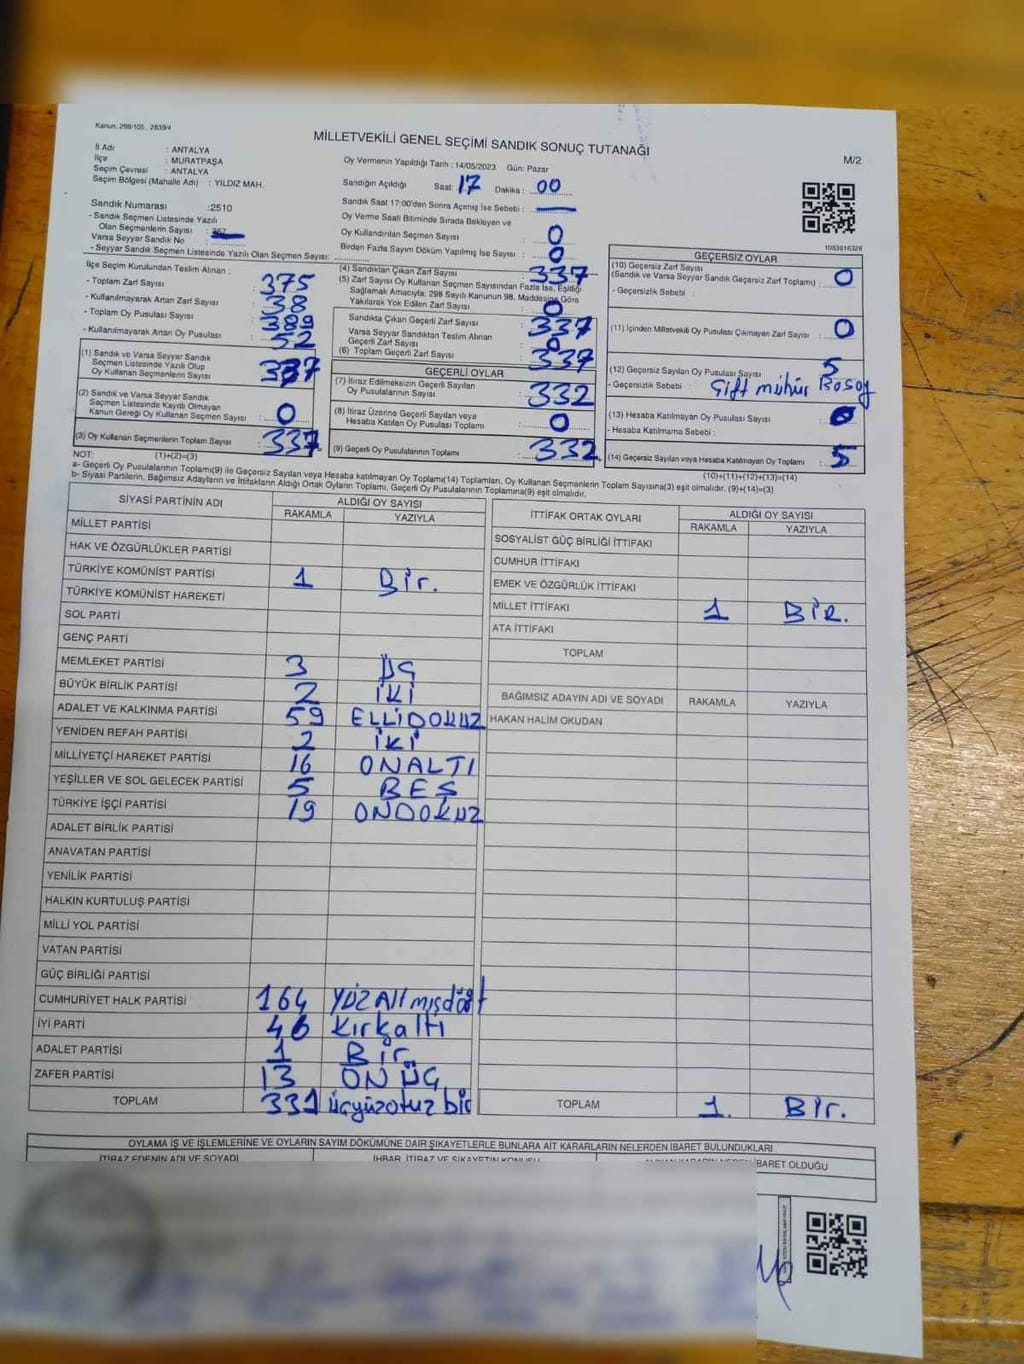 Kanun: 298/105 , 2839/4
MİLLETVEKİLİ GENEL SEÇİMİ SANDIK SONUÇ TUTANAĞI
M/2
İl Adı : ANTALYA
İlçe : MURATPAŞA
Seçim Çevresi : ANTALYA
Seçim Bölgesi (Mahalle Adı) : YILDIZ MAH.
Oy Vermenin Yapıldığı Tarih : 14/05/2023 Gün: Pazar
Sandığın Açıldığı Saat: 17 Dakika : 00
Sandık Saat 17:00'den Sonra Açımış İse Sebebi :
Oy Verme Saati Bitiminde Sırada Bekleyen ve
Oy Kullandırılan Seçmen Sayısı : 0
Birden Fazla Sayım Döküm Yapılmış İse Sayısı : 0
Sandık Numarası :2510
- Sandık Seçmen Listesinde Yazılı
Olan Seçmenlerin Sayısı :
Varsa Seyyar Sandık No :
- Seyyar Sandık Seçmen Listesinde Yazılı Olan Seçmen Sayısı:
İlçe Seçim Kurulundan Teslim Alınan ;
- Toplam Zarf Sayısı : 375
- Kullanılmayarak Artan Zarf Sayısı : 38
- Toplam Oy Pusulası Sayısı : 389
- Kullanılmayarak Artan Oy Pusulası : 52
(1) Sandık ve Varsa Seyyar Sandık
Seçmen Listesinde Yazılı Olup
Oy Kullanan Seçmenlerin Sayısı : 337
(2) Sandık ve Varsa Seyyar Sandık
Seçmen Listesinde Kayıtlı Olmayan
Kanun Gereği Oy Kullanan Seçmen Sayısı : 0
(3) Oy Kullanan Seçmenlerin Toplam Sayısı : 337
(4) Sandıktan Çıkan Zarf Sayısı : 337
(5) Zarf Sayısı Oy Kullanan Seçmen Sayısından Fazla İse, Eşitliği
Sağlamak Amacıyla, 298 Sayılı Kanunun 98. Maddesine Göre
Yakılarak Yok Edilen Zarf Sayısı : 0
Sandıkta Çıkan Geçerli Zarf Sayısı : 337
Varsa Seyyar Sandıktan Teslim Alınan
Geçerli Zarf Sayısı : 0
(6) Toplam Geçerli Zarf Sayısı : 337
GEÇERLİ OYLAR
(7) İtiraz Edilmeksizin Geçerli Sayılan
Oy Pusulalarının Sayısı : 332
(8) İtiraz Üzerine Geçerli Sayılan veya
Hesaba Katılan Oy Pusulası Toplamı : 0
(9) Geçerli Oy Pusulalarının Toplamı : 332
1083816328
GEÇERSİZ OYLAR
(10) Geçersiz Zarf Sayısı
(Sandık ve Varsa Seyyar Sandık Geçersiz Zarf Toplamı) : 0
- Geçersizlik Sebebi :
(11) İçinden Milletvekili Oy Pusulası Çıkmayan Zarf Sayısı : 0
(12) Geçersiz Sayılan Oy Pusulası Sayısı : 5
- Geçersizlik Sebebi : Çift mühür
(13) Hesaba Katılmayan Oy Pusulası Sayısı : 0
- Hesaba Katılmama Sebebi :
(14) Geçersiz Sayılan veya Hesaba Katılmayan Oy Toplamı : 5
NOT: (1)+(2)=(3)
(10)+(11)+(12)+(13)=(14)
a- Geçerli Oy Pusulaları Toplamı(9) ile Geçersiz Sayılan veya Hesaba katılmayan Oy Toplamı(14) Toplamları, Oy Kullanan Seçmenlerin Toplam Sayısına(3) eşit olmalıdır. (9)+(14)=(3)
b- Siyasi Partilerin, Bağımsız Adayların ve İttifakların Aldığı Ortak Oyların Toplamı, Geçerli Oy Pusulalarının Toplamına(9) eşit olmalıdır.
SİYASİ PARTİNİN ADI ALDIĞI OY SAYISI
RAKAMLA YAZIYLA
MİLLET PARTİSİ
HAK VE ÖZGÜRLÜKLER PARTİSİ
TÜRKİYE KOMÜNİST PARTİSİ 1 Bir.
TÜRKİYE KOMÜNİST HAREKETİ
SOL PARTİ
GENÇ PARTİ
MEMLEKET PARTİSİ 3 ÜÇ
BÜYÜK BİRLİK PARTİSİ 2 İKİ
ADALET VE KALKINMA PARTİSİ 59 ELLİDOKUZ
YENİDEN REFAH PARTİSİ 2 İKİ
MİLLİYETÇİ HAREKET PARTİSİ 16 ONALTI
YEŞİLLER VE SOL GELECEK PARTİSİ 5 BEŞ
TÜRKİYE İŞÇİ PARTİSİ 19 ONDOKUZ
ADALET BİRLİK PARTİSİ
ANAVATAN PARTİSİ
YENİLİK PARTİSİ
HALKIN KURTULUŞ PARTİSİ
MİLLİ YOL PARTİSİ
VATAN PARTİSİ
GÜÇ BİRLİĞİ PARTİSİ
CUMHURİYET HALK PARTİSİ 164 YÜZAltmışdört
İYİ PARTİ 46 Kırkaltı
ADALET PARTİSİ 1 Bir
ZAFER PARTİSİ 13 ONÜÇ
TOPLAM 331 Üçyüzotuz bir
İTTİFAK ORTAK OYLARI ALDIĞI OY SAYISI
RAKAMLA YAZIYLA
SOSYALİST GÜÇ BİRLİĞİ İTTİFAKI
CUMHUR İTTİFAKI
EMEK VE ÖZGÜRLÜK İTTİFAKI
MİLLET İTTİFAKI 1 BİR.
ATA İTTİFAKI
TOPLAM
BAĞIMSIZ ADAYIN ADI VE SOYADI RAKAMLA YAZIYLA
HAKAN HALİM OKUDAN
TOPLAM 1. Bir.
OYLAMA İŞ VE İŞLEMLERİNE VE OYLARIN SAYIM DÖKÜMÜNE DAİR ŞİKAYETLERLE BUNLARA AİT KARARLARIN NELERDEN İBARET BULUNDUKLARI
İTİRAZ EDENİN ADI VE SOYADI İHBAR, İTİRAZ VE ŞİKAYETİN KONUSU İBARET OLDUĞU